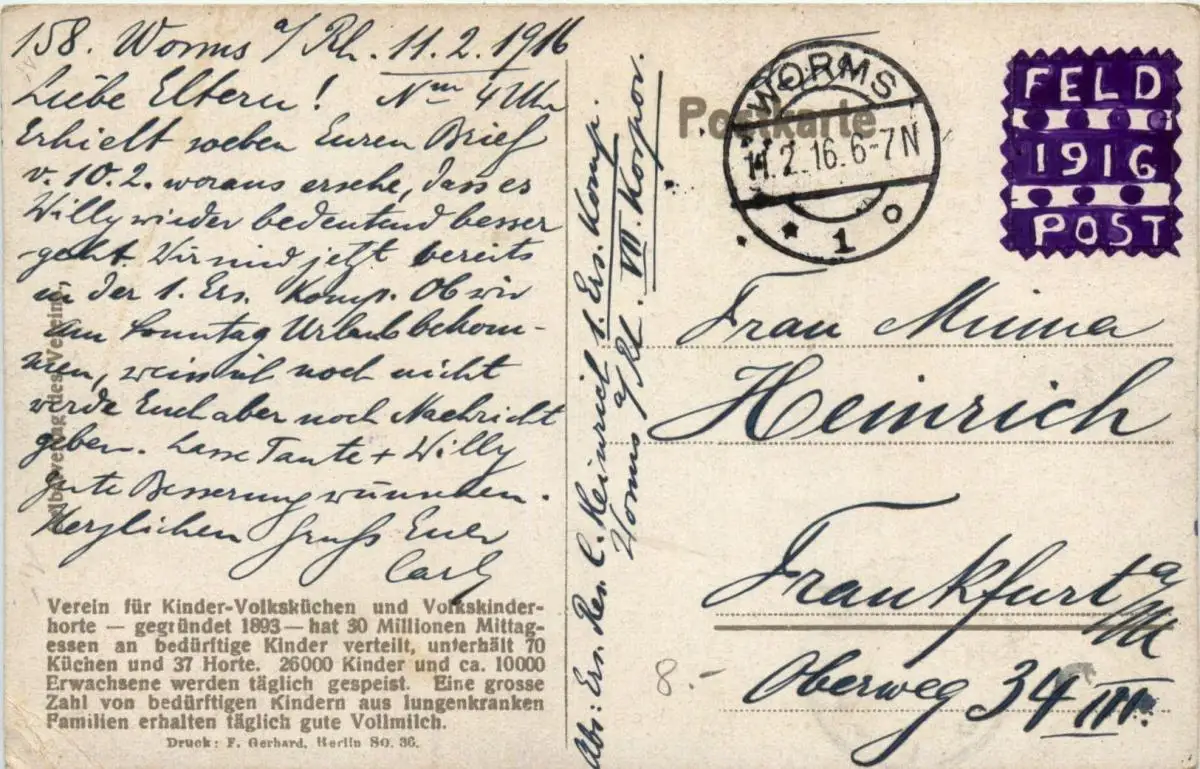 158. Worms a/Rh. 11.2.1916
Liebe Eltern! Nm 4 Uhr
Erhielt soeben Euren Brief
v. 10.2. woraus ersehe, dass es
Willy wieder bedeutend besser
geht. Wir sind jetzt bereits
in der 1. Ers. Komp. Ob wir
am Sonntag Urlaub bekom-
men, weiss ich noch nicht
werde Euch aber noch Nachricht
geben. Lasse Tante + Willy
gute Besserung wünschen.
Herzlichen Gruss Euer
Carl
des Vereins,
Verein für Kinder-Volksküchen und Volkskinder-
horte — gegründet 1893 — hat 30 Millionen Mittag-
essen an bedürftige Kinder verteilt, unterhält 70
Küchen und 37 Horte. 26000 Kinder und ca. 10000
Erwachsene werden täglich gespeist. Eine grosse
Zahl von bedürftigen Kindern aus lungenkranken
Familien erhalten täglich gute Vollmilch.
Druck: F. Gerhard, Berlin SO. 36.
Abs: Ers. Res. C. Heinrich 1. Ers. Komp.
Worms a/Rh. VII. Korpor.
Postkarte
WORMS
11.2.16.6-7N
* 1 o
FELD
1916
POST
Frau Minna
Heinrich
Frankfurt a/M
Oberweg 34 III.
8.-